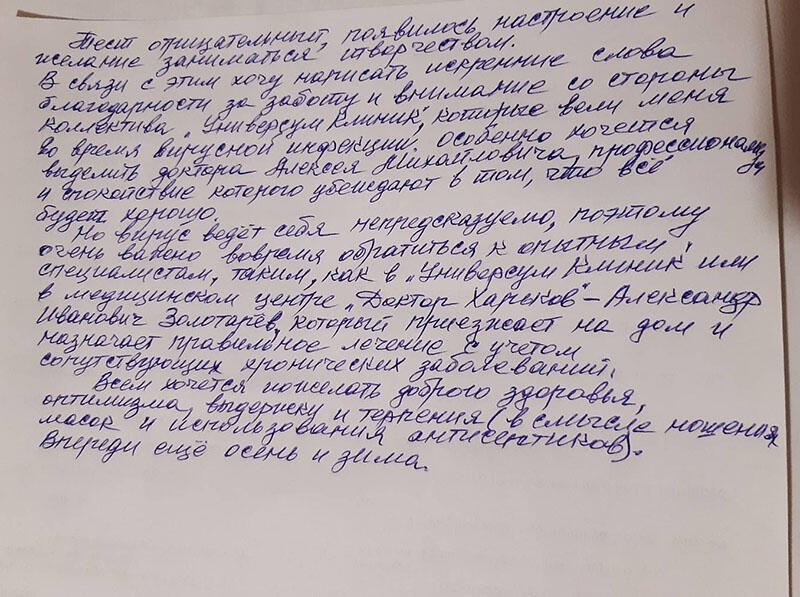 Тест отрицательный, появилось настроение и
желание заниматься творчеством.
В связи с этим хочу написать искренние слова
благодарности за заботу и внимание со стороны
коллектива „Универсум Клиник", которые вели меня
во время вирусной инфекции. Особенно хочется
выделить доктора Алексея Михайловича, профессионализм
и спокойствие которого убеждают в том, что всё
будет хорошо.
Но вирус ведёт себя непредсказуемо, поэтому
очень важно вовремя обратиться к опытным
специалистам, таким, как в „Универсум Клиник" или
в медицинском центре „Доктор Харьков" – Александр
Иванович Золотарёв, который приезжает на дом и
назначает правильное лечение с учетом
сопутствующих хронических заболеваний.
Всем хочется пожелать доброго здоровья,
оптимизма, выдержки и терпения (в смысле ношения
масок и использования антисептиков).
Впереди ещё осень и зима.